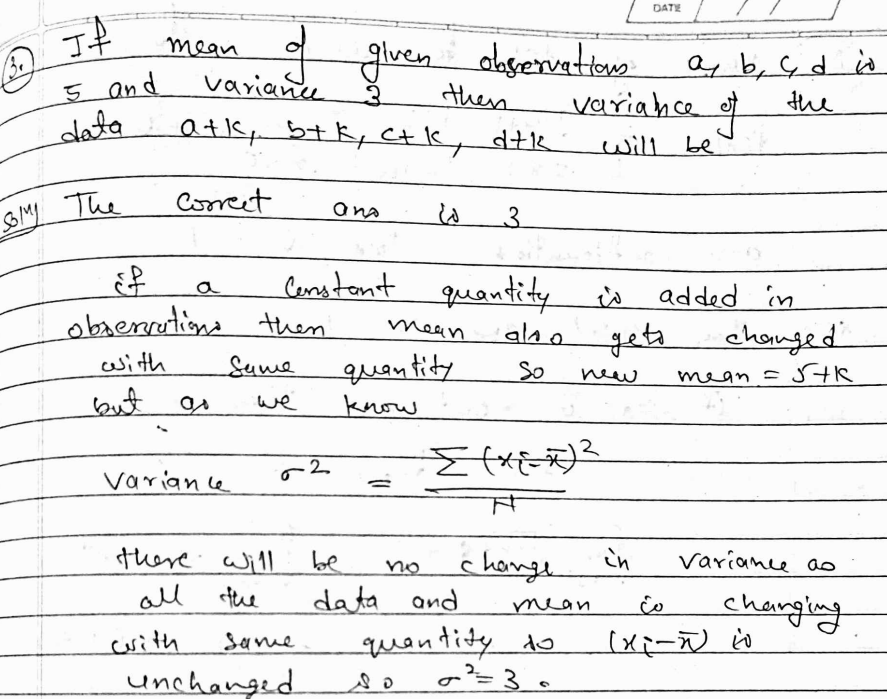 DATE
3. If mean of given observations a, b, c, d is
5 and variance 3 then variance of the
data a+k, b+k, c+k, d+k will be
Sol^n The correct ans is 3
if a constant quantity is added in
observations then mean also gets changed
with same quantity so new mean = 5+k
but as we know
Variance σ² = Σ(xi-x̄)² / N
there will be no change in variance as
all the data and mean is changing
with same quantity so (xi-x̄) is
unchanged so σ²=3.